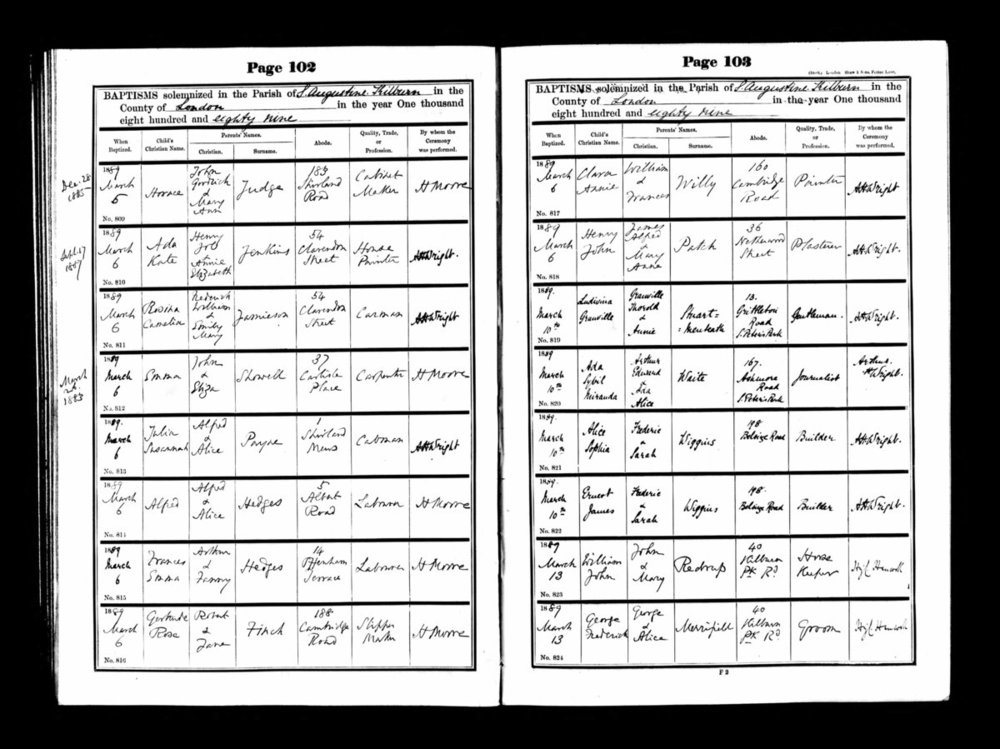 Page 102
BAPTISMS solemnized in the Parish of S. Augustine Kilburn in the
County of London in the year One thousand
eight hundred and eighty nine
When Baptized. Child's Christian Name. Parents' Names. Christian. Surname. Abode. Quality, Trade, or Profession. By whom the Ceremony was performed.
Dec. 28 1885
1889 March 5 Horace John & Mary Ann Judge 183 Shirland Road Cabinet Maker H Moore
No. 809
Sept. 17 1887
1889 March 6 Ada Kate Henry Job Annie Elizabeth Jenkins 54 Clarendon Street House Painter AHWright.
No. 810
1889 March 6 Rosina Camelia William & Emily Mary Jamieson 54 Clarendon Street Carman AHWright
No. 811
March 1883
1889 March 6 Emma John & Eliza Showell 37 Carlisle Place Carpenter H Moore
No. 812
1889. March 6 Julia Susannah Alfred & Alice Payne 1 Shirland Mews Cabman AHWright
No. 813
1889 March 6 Alfred Alfred & Alice Hedges 5 Albert Road Labourer H Moore
No. 814
1889 March 6 Frances Emma Arthur & Fanny Hedges 14 Terrace Labourer H Moore
No. 815
1889 March 6 Gertrude Rose Robert & Jane Finch 188 Cambridge Road Slipper Maker H Moore
No. 816
Page 103
BAPTISMS solemnized in the Parish of S. Augustine Kilburn in the
County of London in the year One thousand
eight hundred and eighty nine
When Baptized. Child's Christian Name. Parents' Names. Christian. Surname. Abode. Quality, Trade, or Profession. By whom the Ceremony was performed.
1889 March 6 Clara Annie William & Frances Willy 160 Cambridge Road Painter AHWright
No. 817
1889 March 6 Henry John James Alfred & Mary Anne Patch 36 Netherwood Street Plasterer AHWright
No. 818
1889. March 10th Ludivina Granville Granville Thorold & Annie Stuart=Menteath 13. Grittleton Road S. Peter's Park Gentleman. AHWright.
No. 819
1889 March 10th Ada Sybil Miranda Arthur Edward & Ada Alice Waite 167. Ashmore Road S. Peter's Park Journalist Arthur H Wright.
No. 820
1889. March 10th Alice Sophia Frederic & Sarah Wiggins 198. Belsize Road Builder AHWright.
No. 821
1889. March 10th Ernest James Frederic & Sarah Wiggins 198. Belsize Road Builder AHWright.
No. 822
1889 March 13 William John John & Mary Redrup 40 Kilburn Pk Rd Horse Keeper
No. 823
1889 March 13 George Frederick George & Alice Merrifill 40 Kilburn Pk Rd Groom
No. 824
F 2